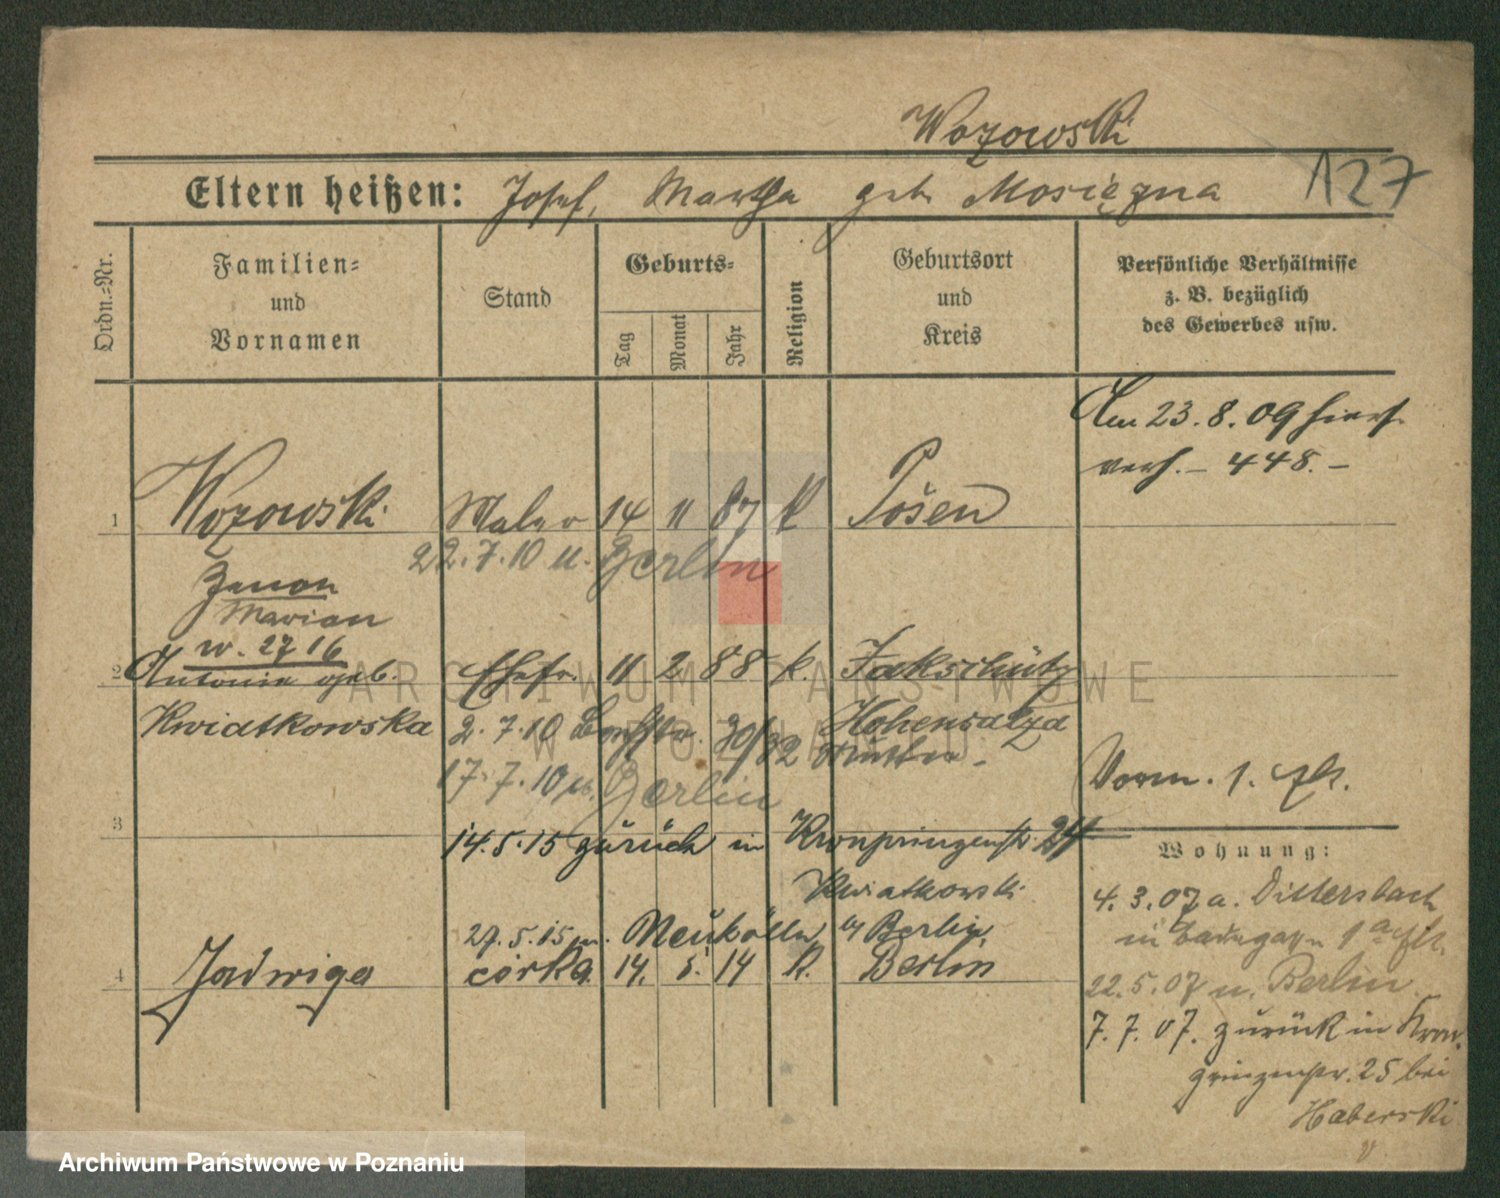 Wozowski
127
Eltern heißen: Josef, Martha geb. Mosiężna
Ordn.-Nr.
Familien-
und
Vornamen
Stand
Geburts-
Tag
Monat
Jahr
Religion
Geburtsort
und
Kreis
Persönliche Verhältnisse
z. B. bezüglich
des Gewerbes usw.
Am 23.8.09 hiers.
verh. – 448. –
1 Wozowski Maler 14 11 87 k Posen
22.7.10 u. Berlin
Zenon
Marian
w. 2716
2 Antonie geb. Ehefr. 11 2 88 k. Jakschütz
Kwiatkowska 2.7.10 30/32 Hohensalza
17.7.10 u. Berlin
Vorm. 1.
3
14.5.15 zurück in Kronprinzenstr. 24
Kwiatkowski
27.5.15 u. Neukölln b/ Berlin
4 Jadwiga córka 14. 5. 14 k. Berlin
Wohnung:
4.3.07 a. Dittersbach
in
22.5.07 u. Berlin
7.7.07. zurück in Kron-
prinzenstr. 25 bei
Haberski
ARCHIWUM PAŃSTWOWE
W POZNANIU
Archiwum Państwowe w Poznaniu